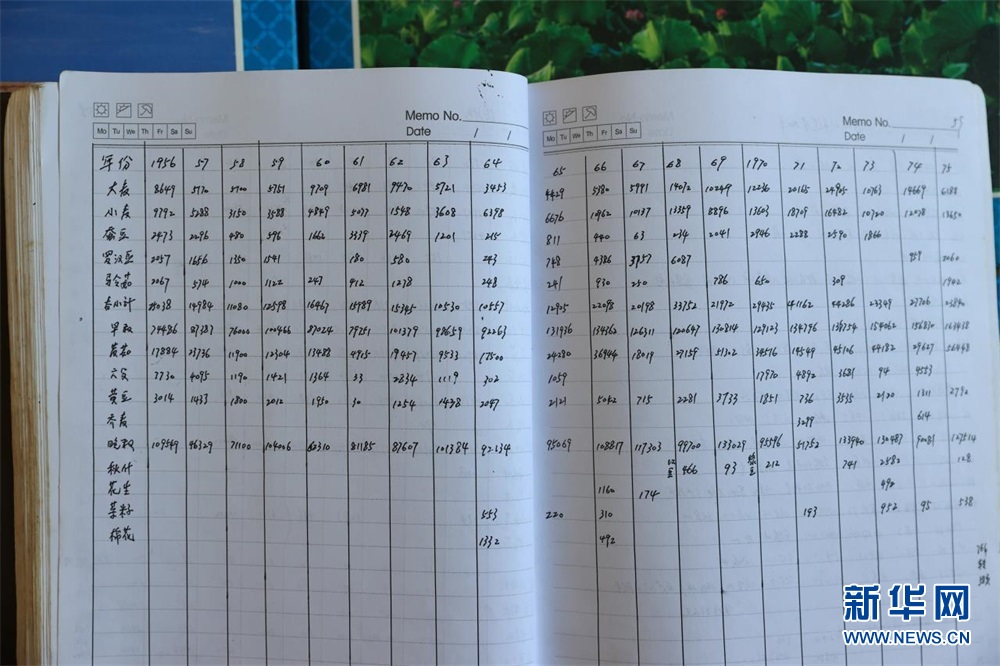 Memo No.
Mo Tu We Th Fr Sa Su
Date / /
年份 1956 57 58 59 60 61 62 63 64
大麦 8649 5770 5700 5751 9709 6981 9470 5721 3453
小麦 9792 5288 3150 3588 4849 5077 1548 3608 6398
蚕豆 2473 2296 480 596 1662 3339 2469 1201 215
罗汉豆 2057 1656 1350 1541 180 580 243
马令茄 2067 574 1000 1122 247 912 1278 248
春小计 14984 11080 12598 16467 15989 15345 10530 10557
早谷 74486 87387 76000 100466 87024 79251 101379 98659 92263
蕃茄 17884 23736 11900 12304 13488 4915 19457 9533 17500
六谷 7730 4095 1190 1421 1364 33 2834 1119 302
黄豆 3014 1433 1800 2012 1950 30 1254 1478 2047
荞麦
晚谷 109549 96329 71100 104006 81185 87607 101384 92134
秋什
花生
菜籽 553
棉花 1332
Memo No.
Mo Tu We Th Fr Sa Su
Date / /
65 66 67 68 69 1970 71 72 73 74 75
4429 5780 5991 14072 10249 12236 20165 24905 10763 14669 6188
6676 10962 10137 13359 8896 13603 18709 16482 10720 12078 13650
811 440 63 234 2041 2946 2288 2590 1866
748 4386 3757 6087 959 2060
241 930 250 786 650 309 1902
12905 22098 20198 33752 21972 29435 41162 44286 23349 27706 25840
131936 134362 126311 120647 132814 129123 134796 154062 156830 163458
24280 36944 18019 27159 51302 34516 14549 45106 44182 29627 56448
1059 17970 4892 3681 94 9553
2121 5042 715 2281 3733 1851 736 3535 2120 1311 2792
3299 614
95069 108817 117303 99700 133029 95596 51752 133940 130487 90081 127514
466 93 212 741 2582 128
1160 174 492
220 310 193 952 95 538
492
新华网
WWW.NEWS.CN